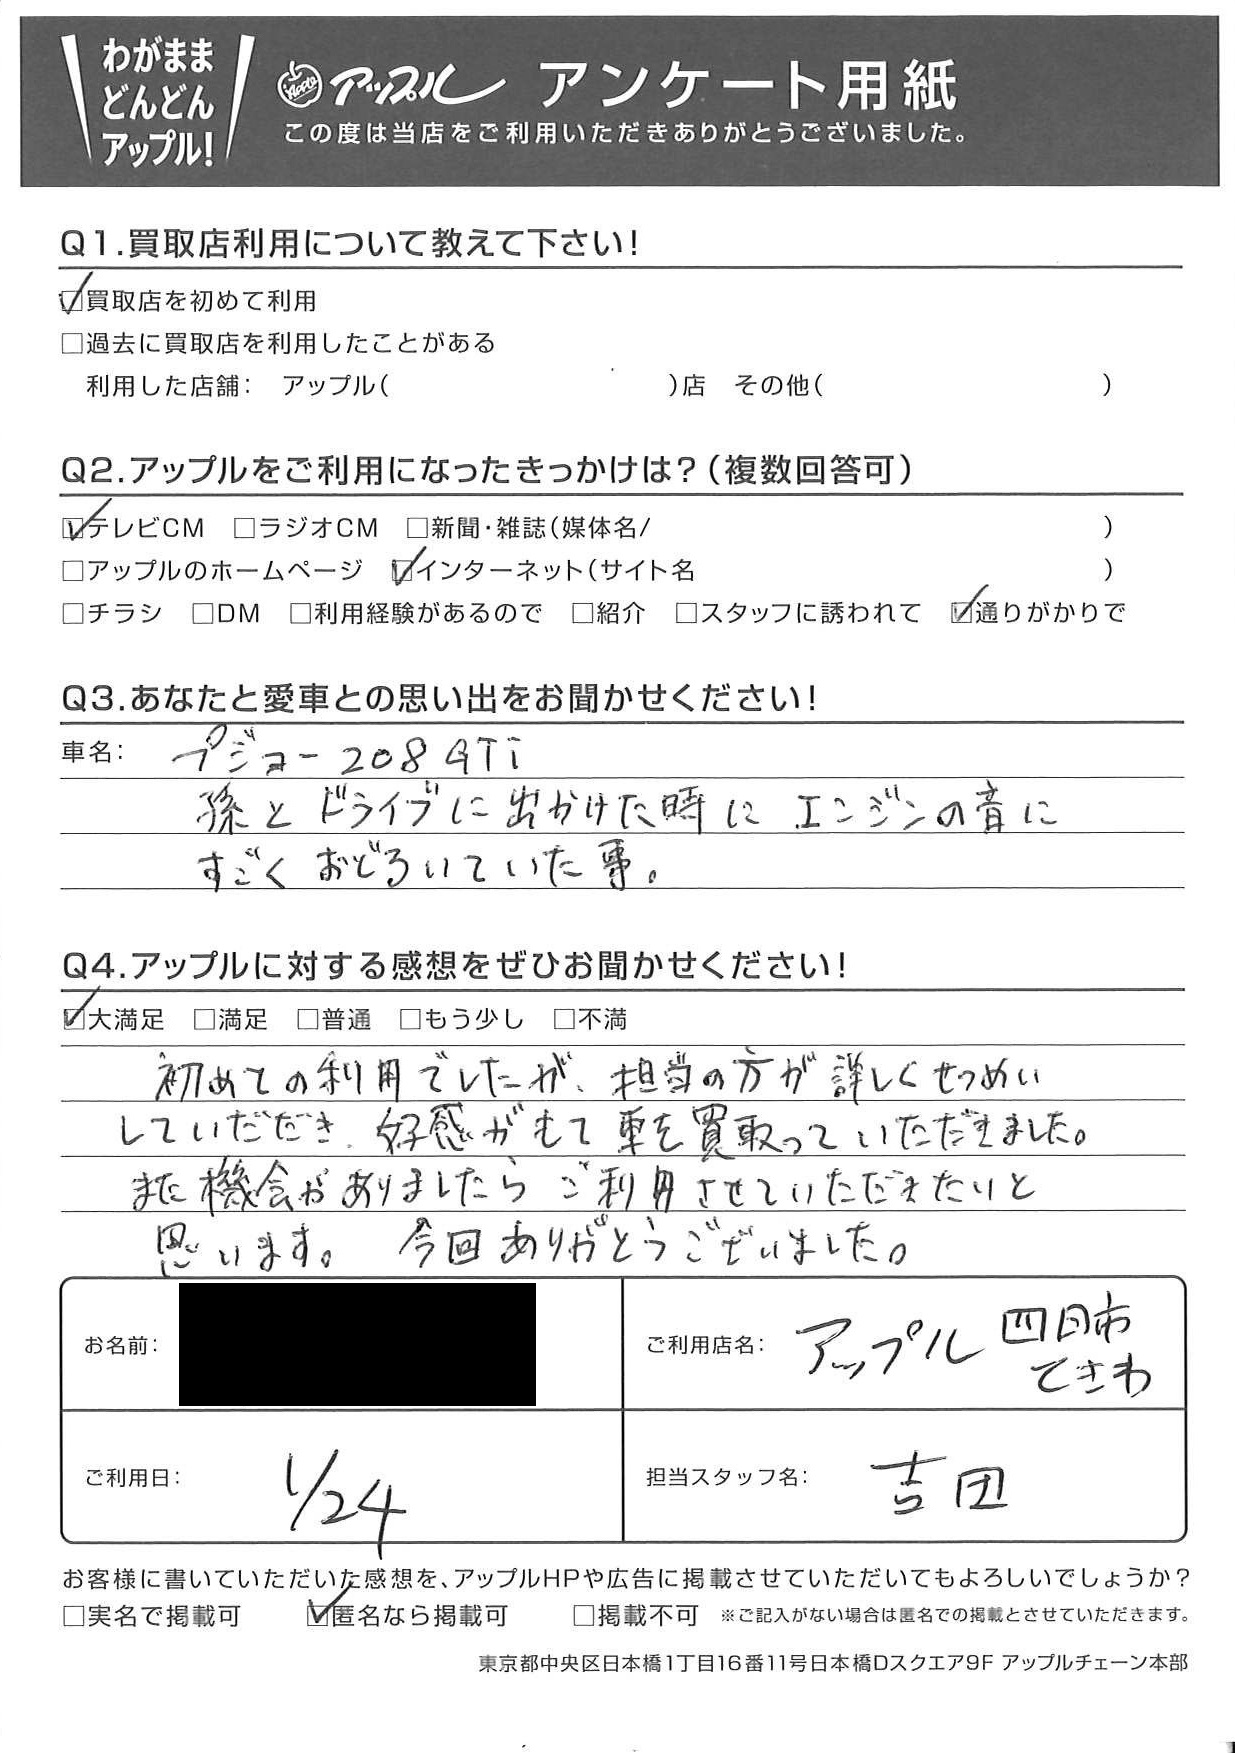 わがまま
どんどん
アップル!
Apple アップル アンケート用紙
この度は当店をご利用いただきありがとうございました。
Q1.買取店利用について教えて下さい!
☑買取店を初めて利用
□過去に買取店を利用したことがある
利用した店舗: アップル( )店 その他( )
Q2.アップルをご利用になったきっかけは?(複数回答可)
☑テレビCM □ラジオCM □新聞・雑誌(媒体名/ )
□アップルのホームページ ☑インターネット(サイト名 )
□チラシ □DM □利用経験があるので □紹介 □スタッフに誘われて ☑通りがかりで
Q3.あなたと愛車との思い出をお聞かせください!
車名: プジョー208GTi
孫とドライブに出かけた時にエンジンの音に
すごくおどろいていた事。
Q4.アップルに対する感想をぜひお聞かせください!
☑大満足 □満足 □普通 □もう少し □不満
初めての利用でしたが、担当の方が詳しくせつめい
していただき、好感がもて車を買取っていただきました。
また機会がありましたらご利用させていただきたいと
思います。 今回ありがとうございました。
お名前:
ご利用店名: アップル 四日市
ときわ
ご利用日: 1/24
担当スタッフ名: 吉田
お客様に書いていただいた感想を、アップルHPや広告に掲載させていただいてもよろしいでしょうか?
□実名で掲載可 ☑匿名なら掲載可 □掲載不可 ※ご記入がない場合は匿名での掲載とさせていただきます。
東京都中央区日本橋1丁目16番11号日本橋Dスクエア9F アップルチェーン本部